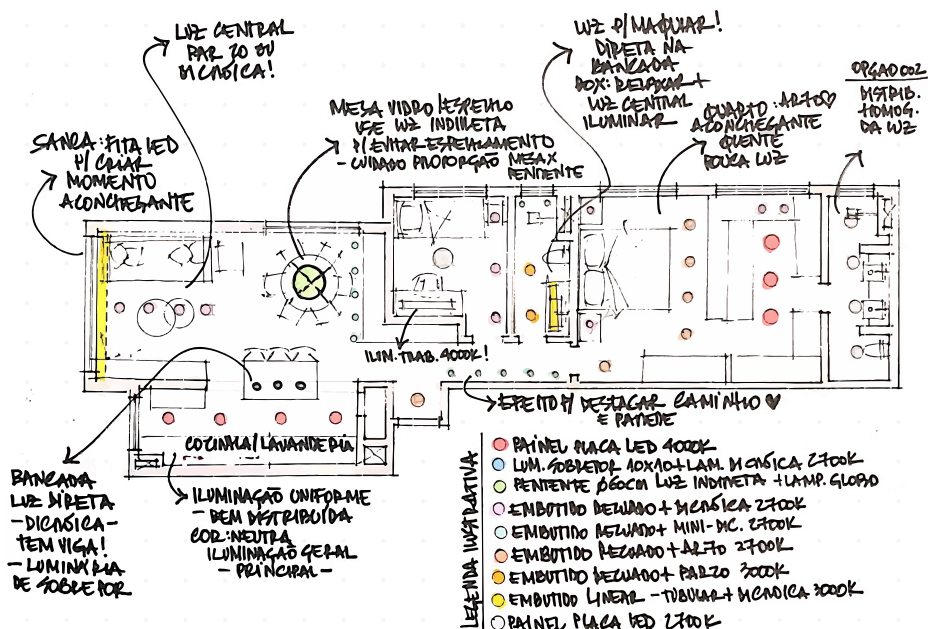 LUZ CENTRAL
PAR 20 OU
DICRÓICA!
SANCA: FITA LED
P/ CRIAR
MOMENTO
ACONCHEGANTE
MESA VIDRO/ESPELHO
USE LUZ INDIRETA
P/ EVITAR ESPELHAMENTO
- CUIDADO PROPORÇÃO MESA X
PENDENTE
LUZ P/ MAQUIAR!
DIRETA NA
BANCADA
BOX: RELAXAR +
LUZ CENTRAL
ILUMINAR
QUARTO: AR70 ♡
ACONCHEGANTE
QUENTE
POUCA LUZ
OPÇÃO 002
DISTRIB.
HOMOG.
DA LUZ
ILUM. TRAB. 4000K!
EFEITO P/ DESTACAR CAMINHO ♥
E PAREDE
COZINHA/LAVANDERIA
BANCADA
LUZ DIRETA
- DICRÓICA -
TEM VIGA!
- LUMINÁRIA
DE SOBREPOR
ILUMINAÇÃO UNIFORME
- BEM DISTRIBUIDA
COR: NEUTRA
ILUMINAÇÃO GERAL
- PRINCIPAL -
LEGENDA ILUSTRATIVA
PAINEL PLACA LED 4000K
LUM. SOBREPOR 10X10 + LAM. DICRÓICA 2700K
PENDENTE Ø60CM LUZ INDIRETA + LAMP. GLOBO
EMBUTIDO RECUADO + DICRÓICA 2700K
EMBUTIDO RECUADO + MINI-DIC. 2700K
EMBUTIDO RECUADO + AR70 2700K
EMBUTIDO RECUADO + PAR20 3000K
EMBUTIDO LINEAR - TUBULAR + DICRÓICA 3000K
PAINEL PLACA LED 2700K